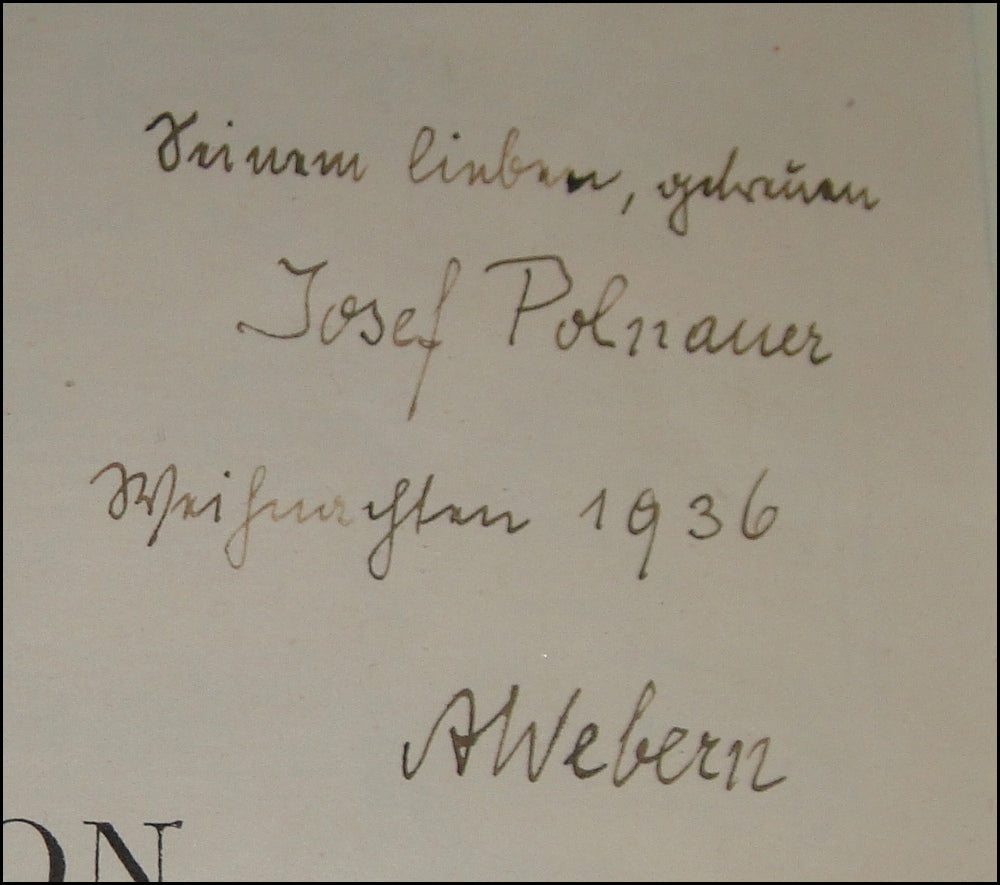 Seinem lieben, getreuen
Josef Polnauer
Weihnachten 1936
AWebern
ON